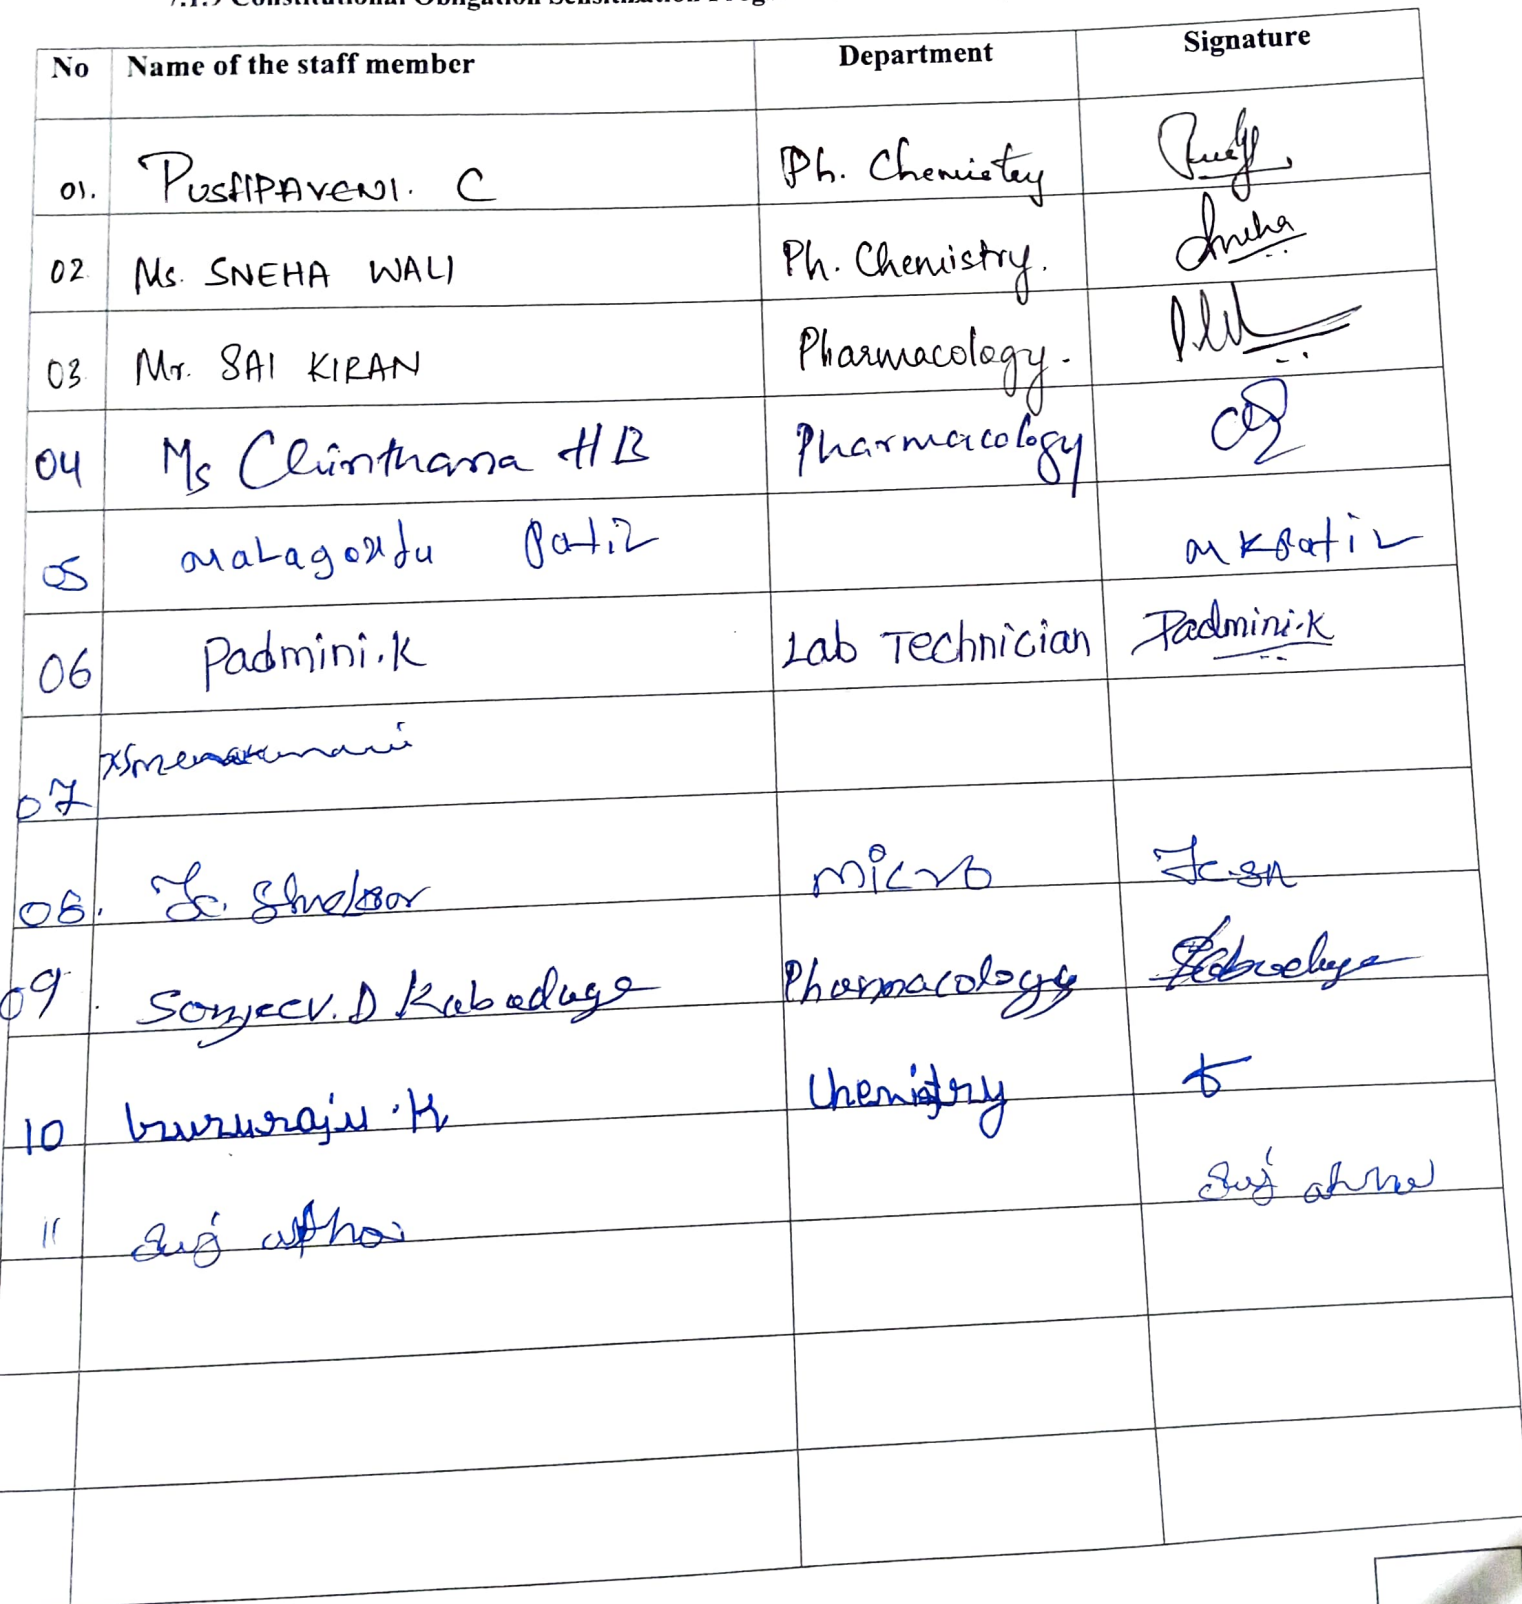 7.1.9 Constitutional Obligation Sensitization
No Name of the staff member Department Signature
01. PUSHPAVENI. C Ph. Chemistry
02. Ms. SNEHA WALI Ph. Chemistry. Sneha
03. Mr. SAI KIRAN Pharmacology.
04 Ms Chinthana H B Pharmacology
05 Malagondu Patil MKPatil
06 Padmini.K Lab Technician Padmini.K
07
08. micro
09. Sanjeev.D Kabadage Pharmacology
10 Gururaju.K Chemistry
11